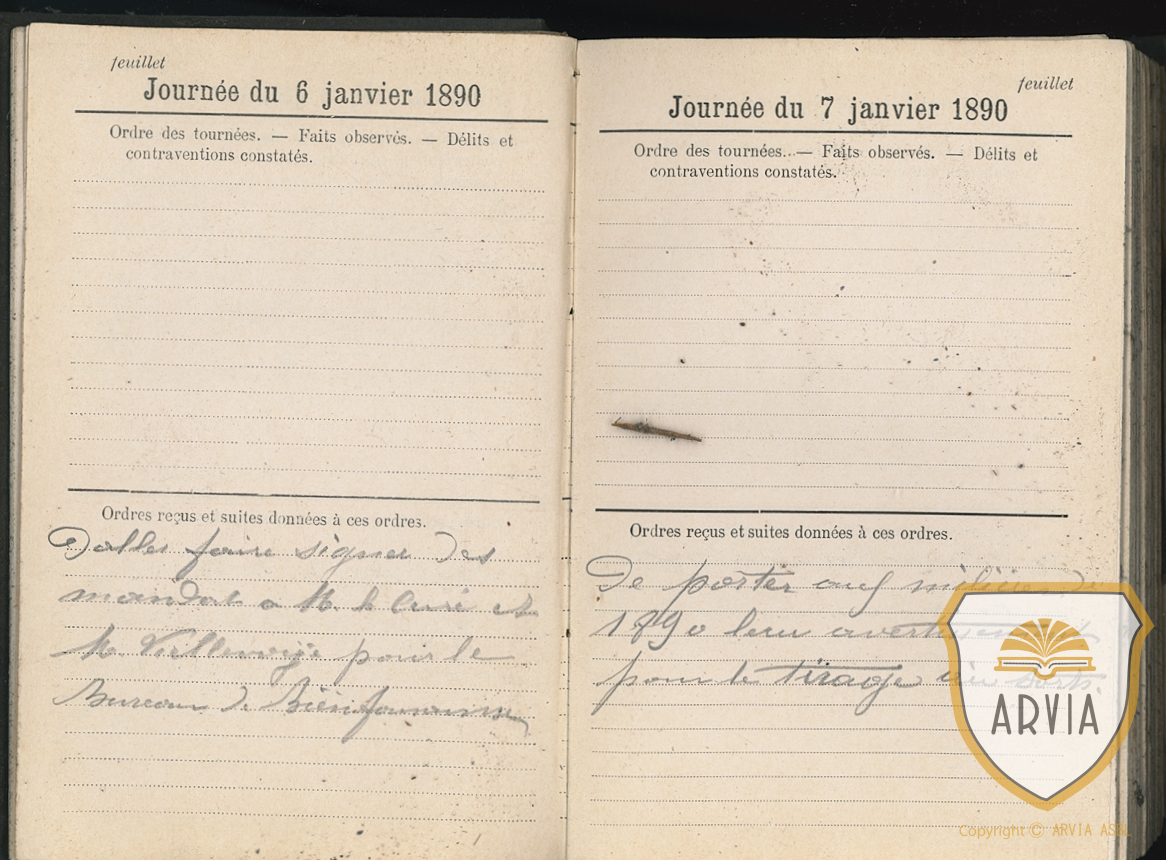 feuillet
Journée du 6 janvier 1890
Ordre des tournées. — Faits observés. — Délits et
contraventions constatés.
Ordres reçus et suites données à ces ordres.
D'aller faire signer des
mandat a M. le Curé et
M. pour le
Bureau de Bienfaisance
feuillet
Journée du 7 janvier 1890
Ordre des tournées. — Faits observés. — Délits et
contraventions constatés.
Ordres reçus et suites données à ces ordres.
De porter auf milicien de
1890 leur avertissement
pour le tirage au sort.
ARVIA
Copyright © ARVIA ASBL